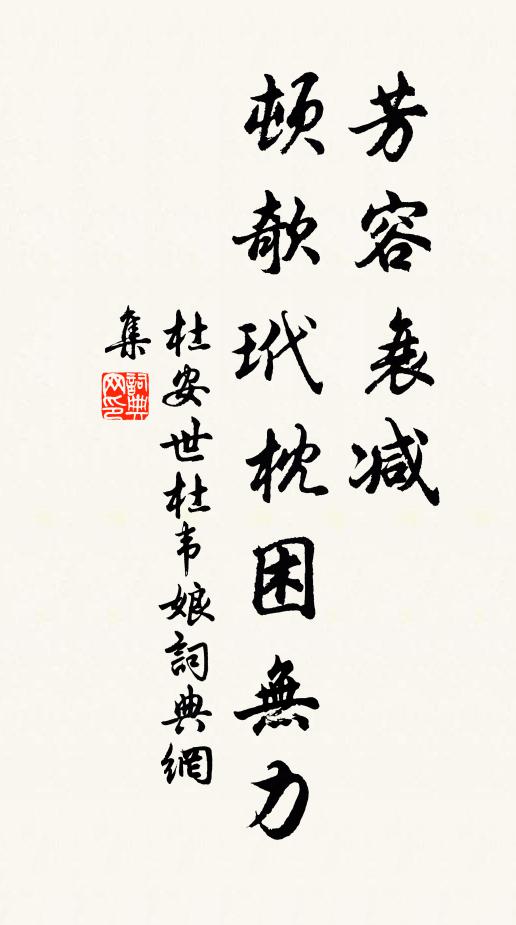 芳容衰减
頓欹玳枕困無力
杜安世杜韦娘詞典網
集
詞典网印